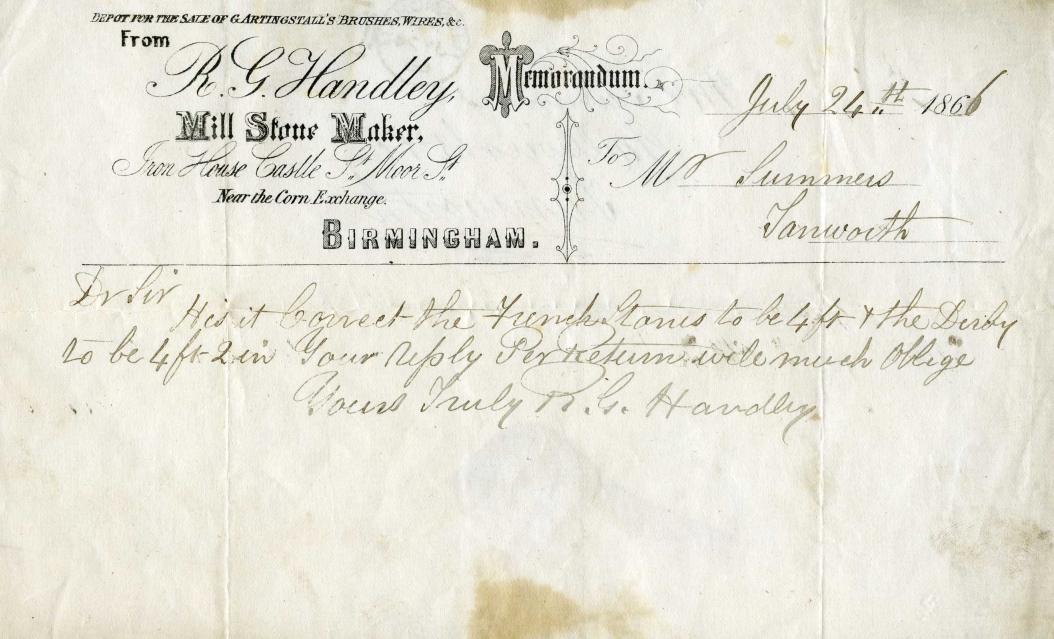 DEPOT FOR THE SALE OF G. ARTINGSTALL'S BRUSHES, WIRES, &c.
From
R. G. Handley,
Mill Stone Maker,
Iron House Castle St. Moor St.
Near the Corn Exchange.
BIRMINGHAM.
Memorandum.
July 24th 1866
To Mr Summers
Tanworth
Dr Sir
His it Correct the French Stones to be 4 ft & the Derby
to be 4 ft 2 in Your reply Per Return will much Oblige
Yours Truly R. G. Handley